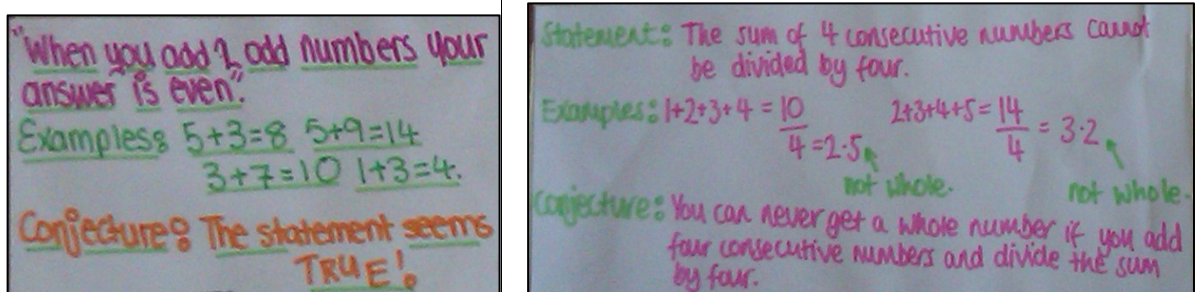 "When you add 2 odd numbers your
answer is even".
Examples: 5+3=8 5+9=14
3+7=10 1+3=4.
Conjecture: The statement seems
TRUE!
Statement: The sum of 4 consecutive numbers cannot
be divided by four.
Examples: 1+2+3+4 = 10/4 = 2·5 2+3+4+5 = 14/4 = 3·2
not whole. not whole.
Conjecture: You can never get a whole number if you add
four consecutive numbers and divide the sum
by four.